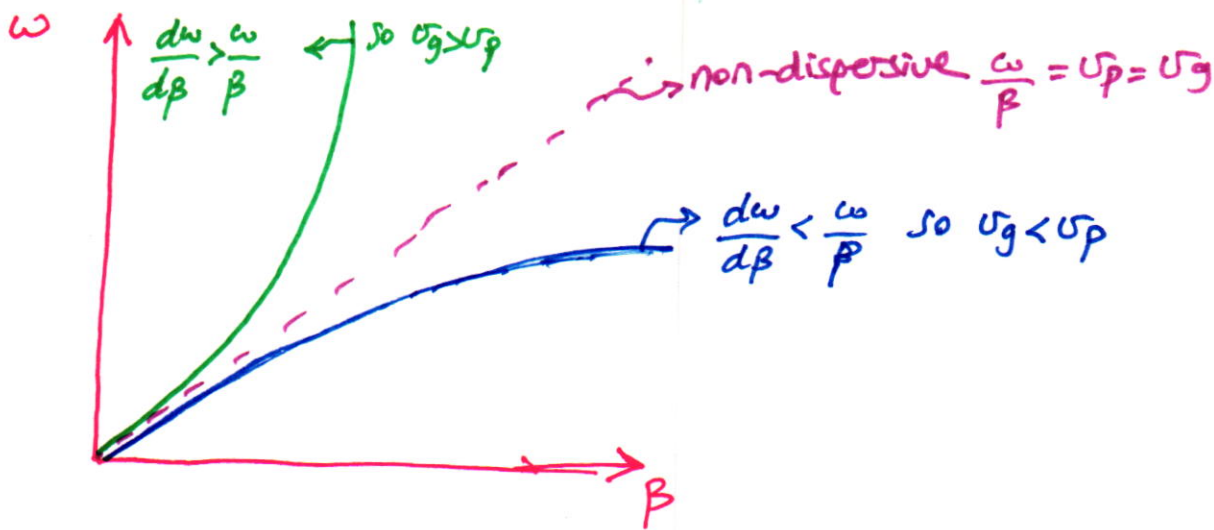 ω
dω/dβ > ω/β ← so υg>υp
→ non-dispersive ω/β = υp = υg
→ dω/dβ < ω/β so υg < υp
β